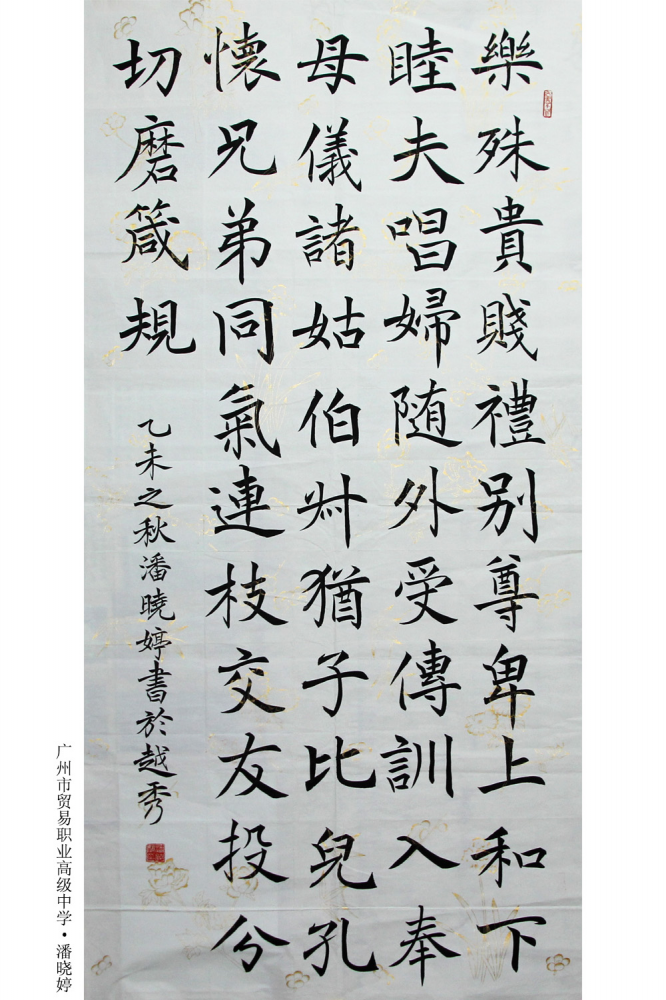 樂殊貴賤禮別尊卑上和下
睦夫唱婦随外受傳訓入奉
母儀諸姑伯叔猶子比兒孔
懷兄弟同氣連枝交友投分
切磨箴規
乙未之秋潘曉婷書於越秀
广州市贸易职业高级中学·潘晓婷